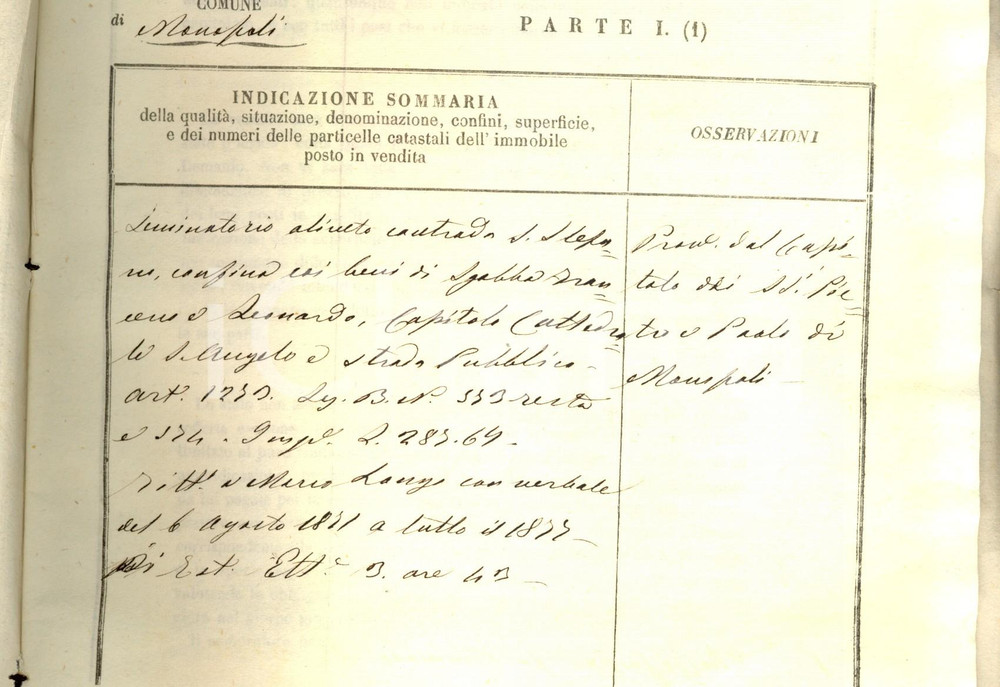 COMUNE
di Monopoli
PARTE I. (1)
INDICAZIONE SOMMARIA
della qualità, situazione, denominazione, confini, superficie,
e dei numeri delle particelle catastali dell' immobile
posto in vendita
OSSERVAZIONI
Seminatorio oliveto contrada S. Stefa=
no, confina coi beni di Sgobba Fran=
cesco e Leonardo, Capitolo Cattedra=
le S. Angelo e strada Pubblica -
art.
e 574. Imp. L. 287.64 -
Fitt. a Marco Longo con verbale
del 6 Agosto 1871 a tutto il 1877 -
Di Est. Ett. 3. are 43 -
Prov. dal Capi=
tolo dei SS. Pie=
tro e Paolo di
Monopoli -